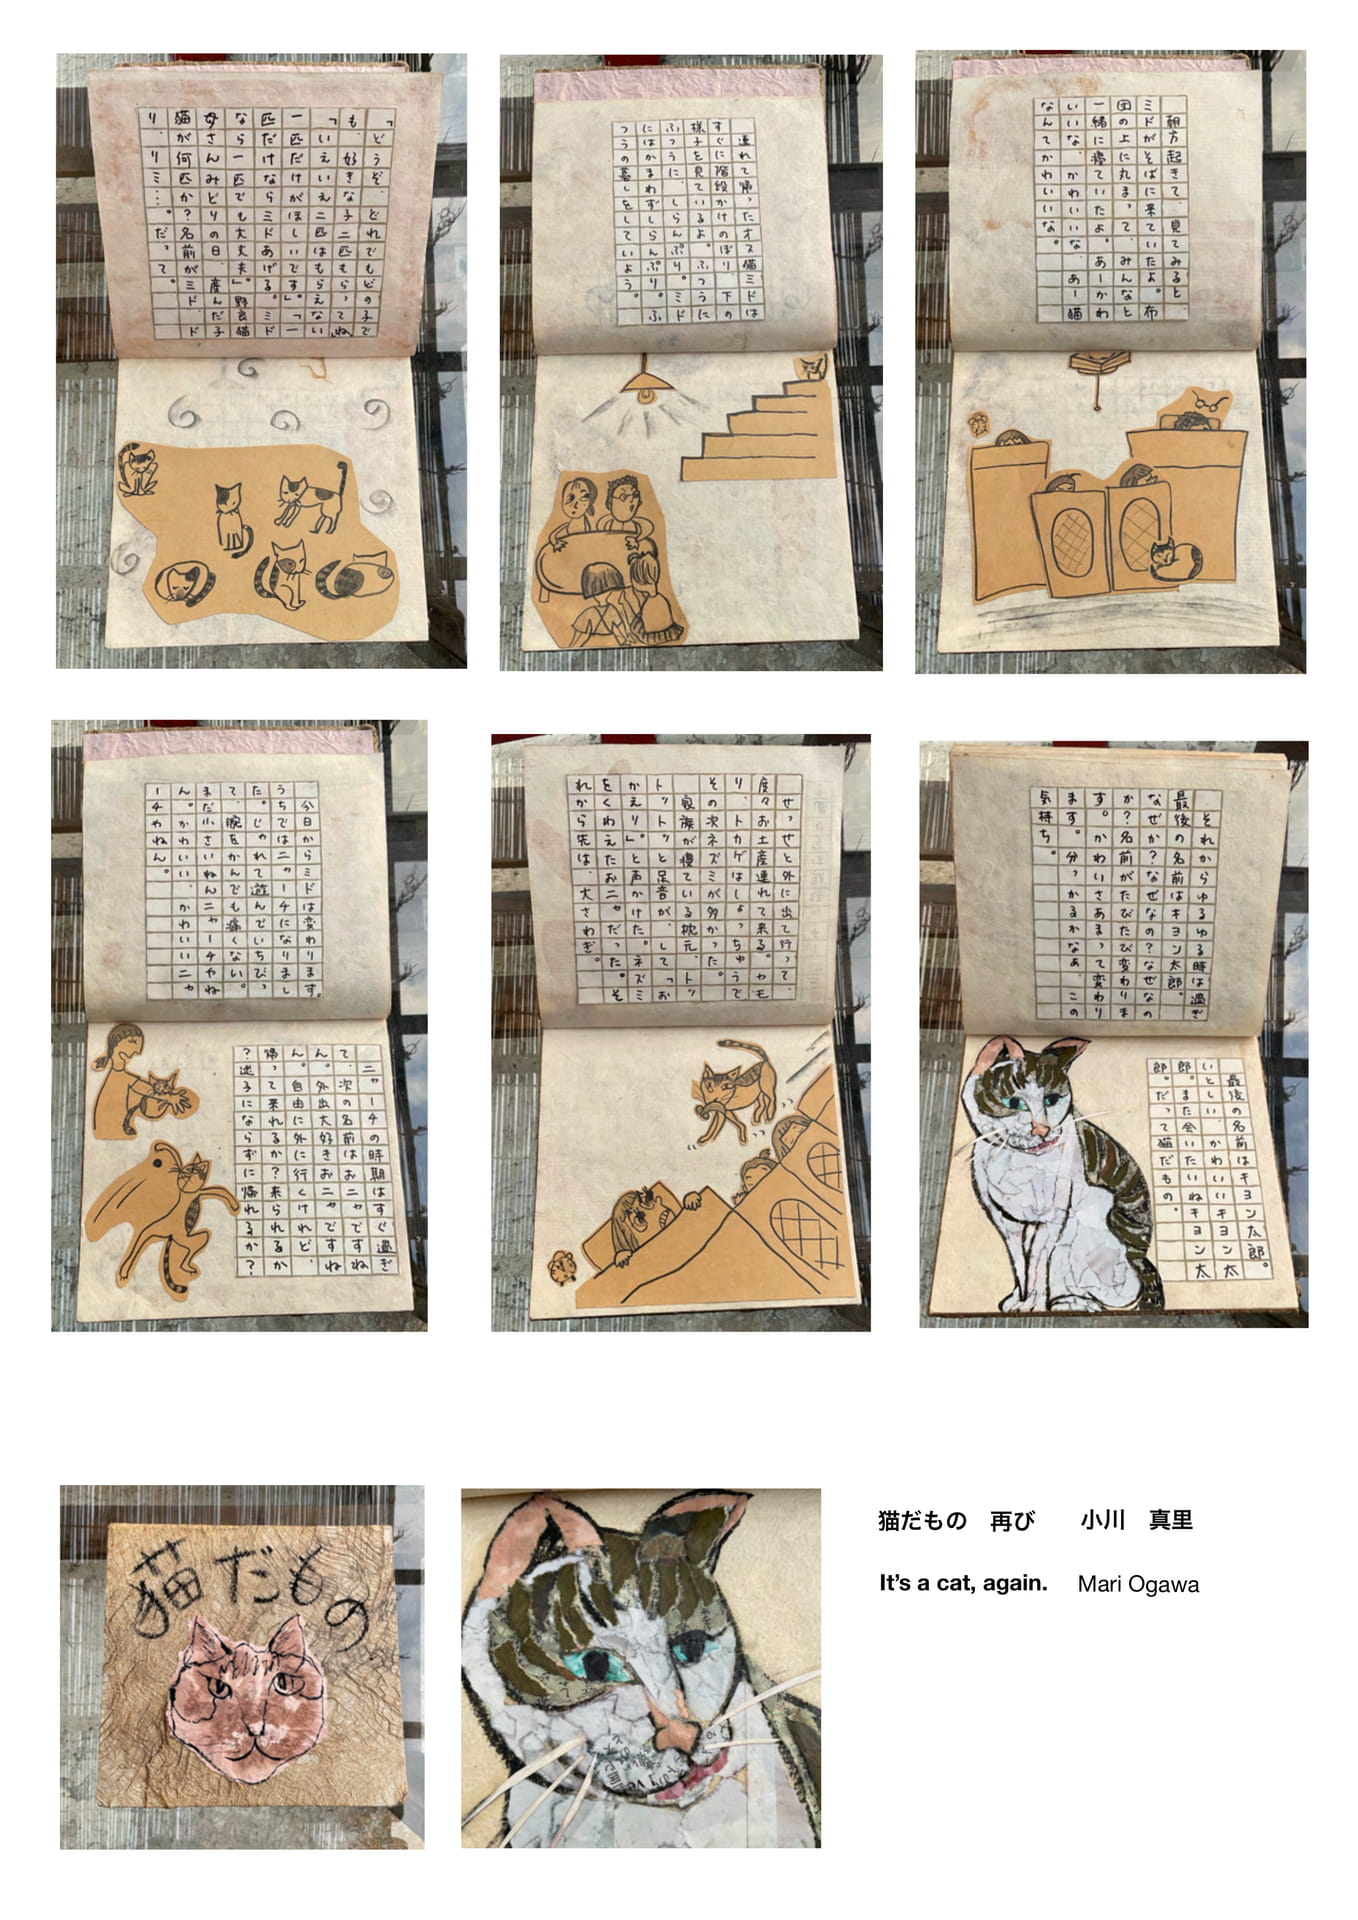 「どうぞ、どれでもどの子で
も、好きな子二匹もらってね」
「いえいえ二匹はもらえない
一匹だけがほしいです」。「一
匹だけならミドあげる。ミド
なら一匹でも大丈夫」。野良猫
母さんみどりの日、産んだ子
猫が何匹か?名前がミド、ド
リ、リミ…。だって。
連れて帰ったオス猫ミドは
すぐに階段かけのぼり、下の
様子を見ているよ。ふつうに
ふつうに、しらんぷり。ミド
にはかまわずしらんぷり。ふ
つうの暮しをしていよう。
朝方起きて、見てみると
ミドがそばに来ていたよ。布
団の上に丸まって、みんなと
一緒に寝ていたよ。あーかわ
いいな、かわいいな、あー猫
なんてかわいいな。
今日からミドは変わります。
うちではニャーチになりまし
た。じゃれて遊んでいちびっ
て、腕をかんでも痛くない。
まだ小さいねんニャーチやね
ん。かわいい、かわいいニャ
ーチやねん。
ニャーチの時期はすぐ過ぎ
て、次の名前はおニャですね
ん。外出大好きおニャですね
ん。自由に外に行くけれど、
帰って来れるか?来られるか
?迷子にならずに帰れるか?
せっせと外に出て行って、
度々お土産連れて来る。ヤモ
リ、トカゲはしょっちゅうで
その次ネズミが多かった。
家族が寝ている枕元、トッ
トットッと足音が、して「お
かえり」と声かけた。ネズミ
をくわえたおニャだった。そ
れから先は、大さわぎ。
それからゆるゆる時は過ぎ
最後の名前はキヨン太郎。
なぜか?なぜなの?なぜなの
か?名前がたびたび変わりま
す。かわいさあまって変わり
ます。分っかるかなあ、この
気持ち。
最後の名前はキヨン太郎。
いとしい、かわいいキヨン太
郎。また会いたいねキヨン太
郎。だって猫だもの。
猫だもの
猫だもの 再び 小川 真里
It's a cat, again. Mari Ogawa